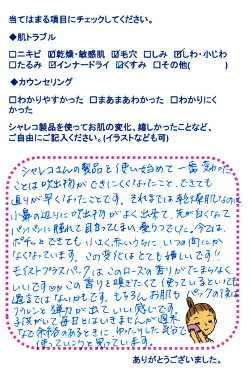 当てはまる項目にチェックしてください。
◆肌トラブル
□ニキビ ☑乾燥・敏感肌 ☑毛穴 □しみ ☑しわ・小じわ
□たるみ ☑インナードライ ☑くすみ □その他( )
◆カウンセリング
□わかりやすかった □まあまあわかった □わかりにく
かった
シャレコ製品を使ってお肌の変化、嬉しかったことなど、
ご自由にご記入ください。(イラストなども可)
シャレコさんの製品を使い始めて一番変わった
ことは吹出物ができにくくなったこと、できても
治りが早くなったことです。それまでは乾燥肌なのに
小鼻の辺りに吹出物がよく出来て、先が白くなって
パンパンに腫れて目立ってしまい、憂うつでした。今は、
ポチッとできても小さく赤いうちに、いつの間にか
なくなっています。この変化はとても嬉しいです!!
モイストプラスパックはこのローズの香りがたまらなく
いいですね この香りを嗅ぎたくて使っているといっても
過言ではないかもです。もちろんお肌もパックの後は
プルンと弾力が出ていい感じです。
子供がいて毎日とはいきませんが週末
など余裕のあるときにゆったりした気分で
使っていこうと思っています。
ありがとうございました。